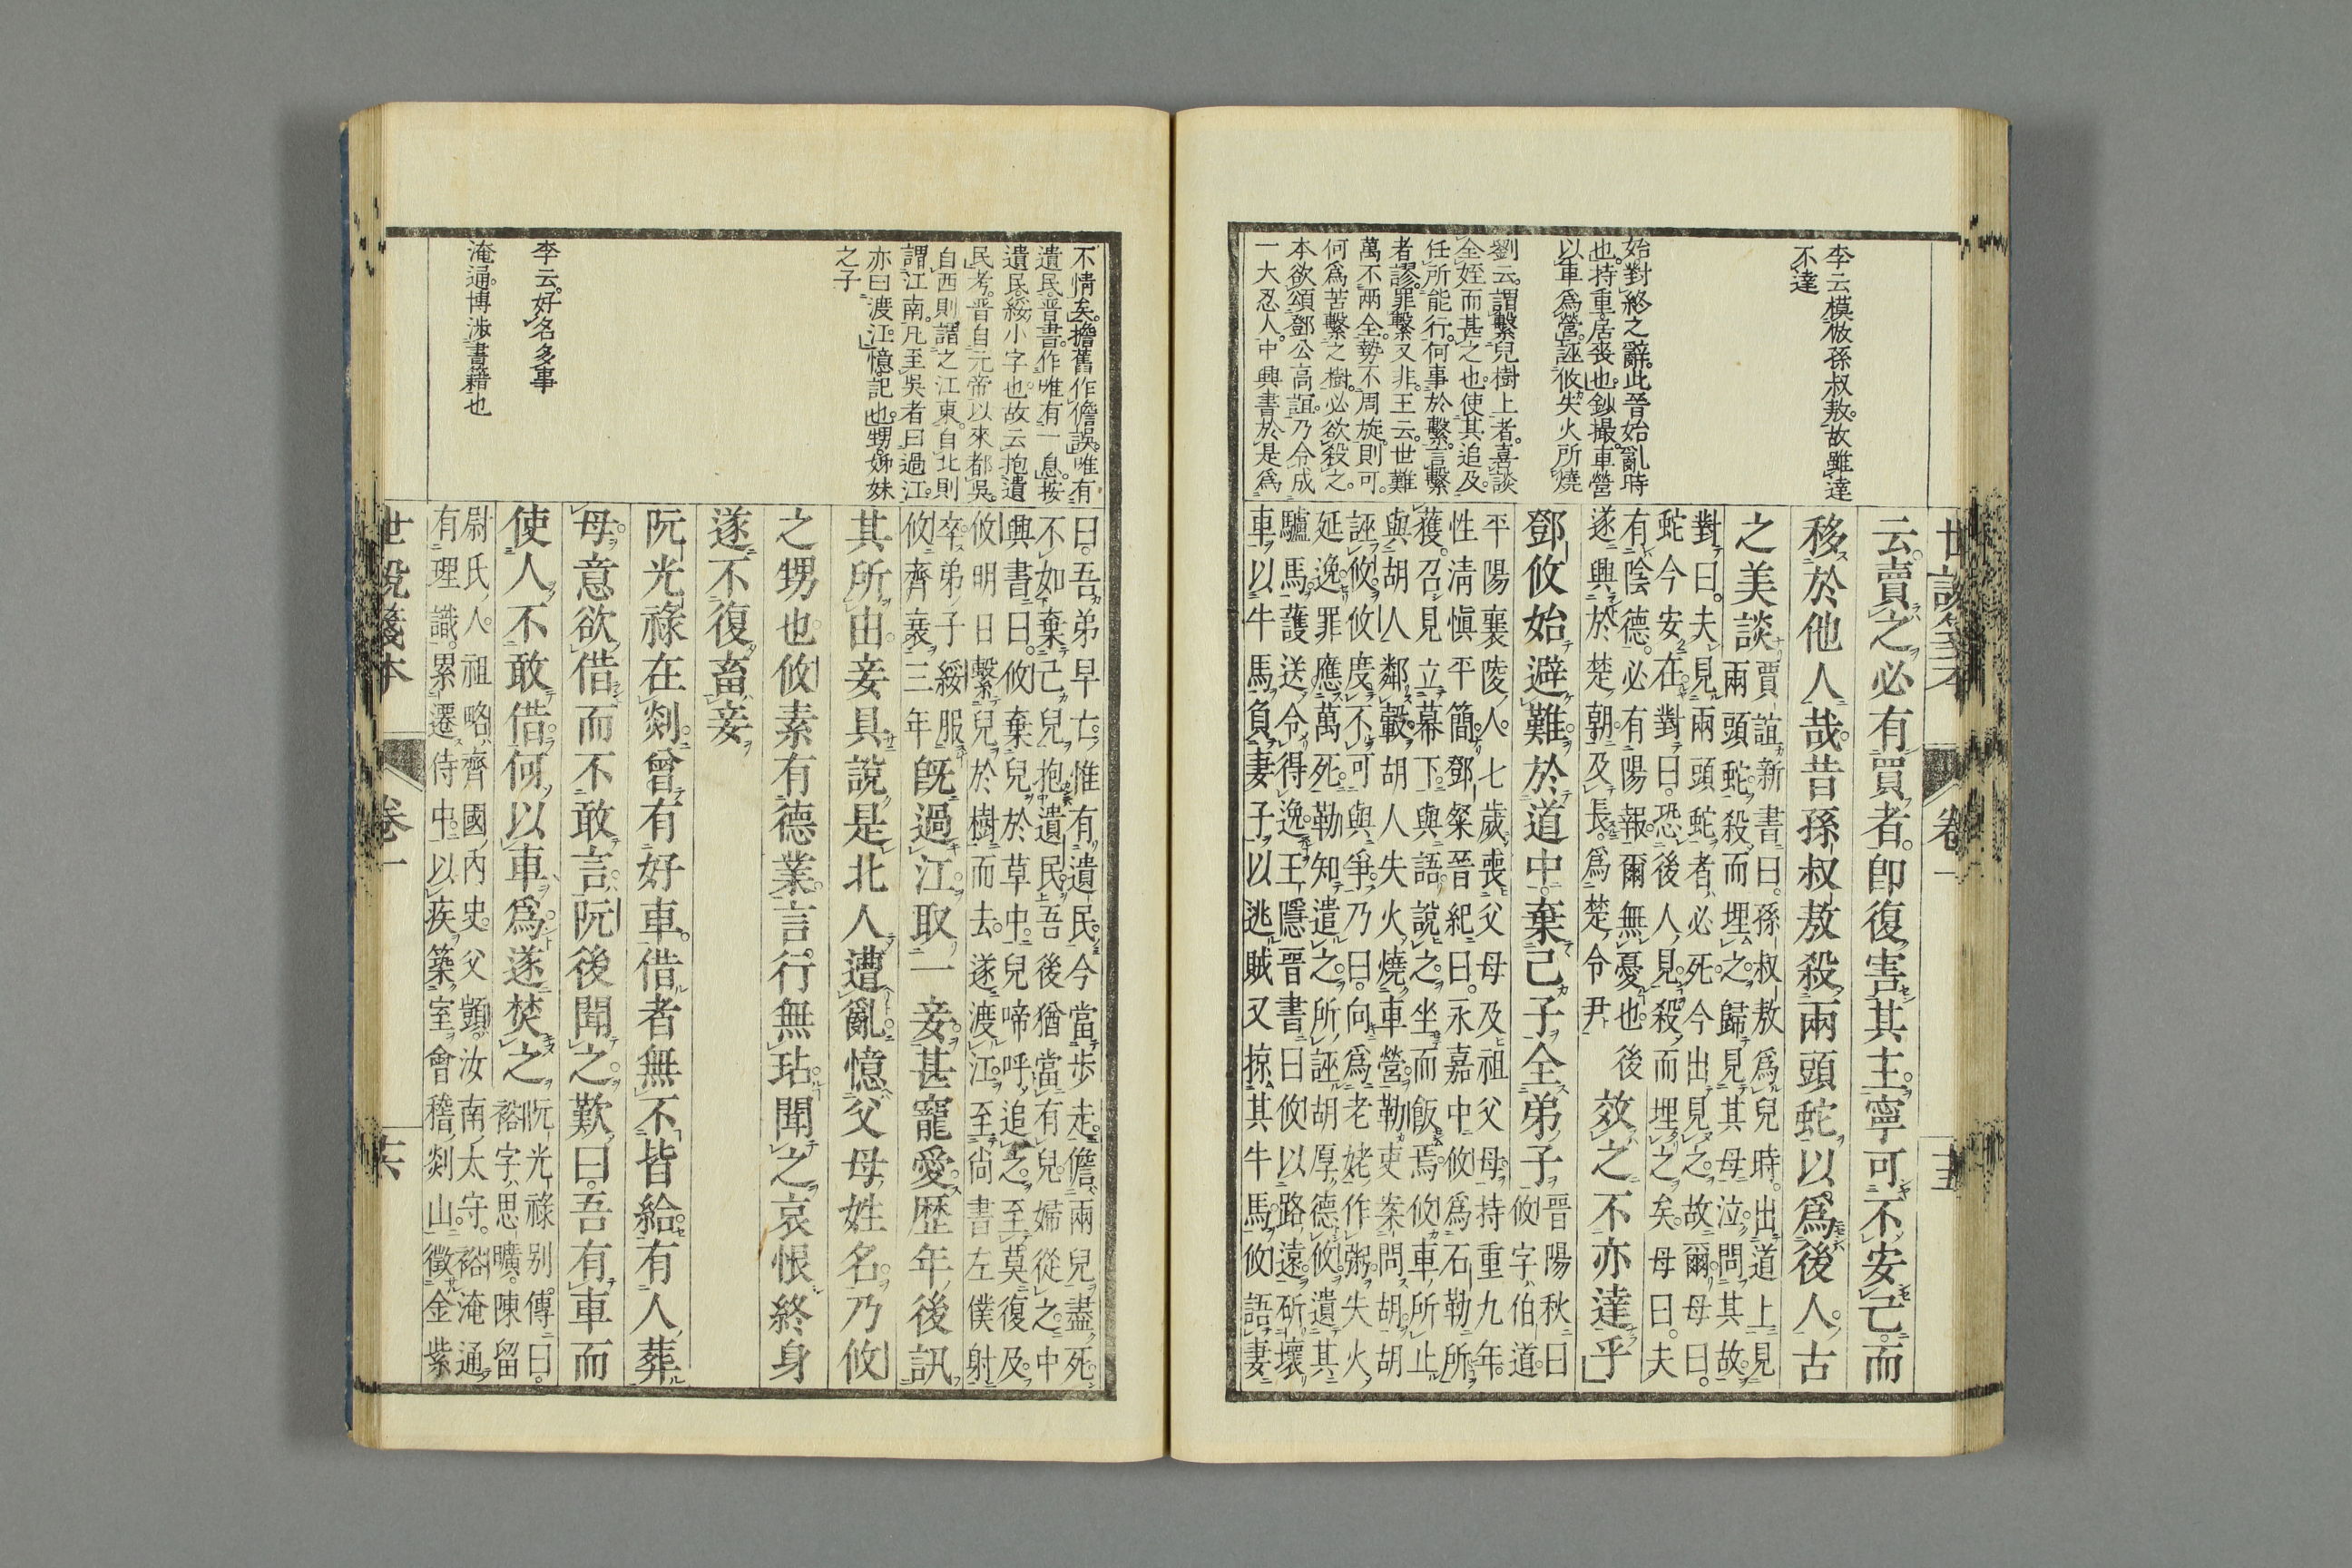 世說箋本 卷一 十五
李云模倣孫叔敖故雖達
不達
始對終之辭此晉始亂時
也持重居喪也鈔撮車營
以車爲營誣攸失火所燒
劉云謂繫兒樹上者喜談
全姪而甚之也使其追及
任所能行何事於繫言繫
者謬罪繫又非王云世難
萬不兩全勢不周旋則可
何爲苦繫之樹必欲殺之
本欲頌鄧公高誼乃令成
一大忍人中興書於是爲
云賣之必有買者卽復害其主寧可不安己而
移於他人哉昔孫叔敖殺兩頭蛇以爲後人古
之美談
賈誼新書曰孫叔敖爲兒時出道上見
兩頭蛇殺而埋之歸見其母泣問其故
對曰夫見兩頭蛇者必死今出見之故爾母曰
蛇今安在對曰恐後人見殺而埋之矣母曰夫
有陰德必有陽報爾無憂也後
遂興於楚朝及長爲楚令尹
效之不亦達乎
鄧攸始避難於道中棄己子全弟子
晉陽秋曰
攸字伯道
平陽襄陵人七歲喪父母及祖父母持重九年
性淸愼平簡鄧粲晉紀曰永嘉中攸爲石勒所
獲召見立幕下與語說之坐而飯焉攸車所止
與胡人鄰轂胡人失火燒車營勒吏案問胡胡
誣攸攸度不可與爭乃曰向爲老姥作粥失火
延逸罪應萬死勒知遣之所誣胡厚德攸遺其
驢馬護送令得逸王隱晉書曰攸以路遠斫壞
車以牛馬負妻子以逃賊又掠其牛馬攸語妻
不情矣擔舊作儋誤唯有
遺民晋書作唯有一息按
遺民綏小字也故云抱遺
民考晋自元帝以來都吳
自西則謂之江東自北則
謂江南凡至吳者曰過江
亦曰渡江憶記也甥姊妹
之子
李云好名多事
淹通博渉書籍也
曰吾弟早亡惟有遺民今當步走儋兩兒盡死
不如棄己兒抱遺民吾後猶當有兒婦從之中
興書曰攸棄兒於草中兒啼呼追之至莫復及
攸明日繫兒於樹而去遂渡江至尙書左僕射
卒弟子綏服
攸齊衰三年
旣過江取一妾甚寵愛歷年後訊
其所由妾具說是北人遭亂憶父母姓名乃攸
之甥也攸素有德業言行無玷聞之哀恨終身
遂不復畜妾
阮光祿在剡曾有好車借者無不皆給有人葬
母意欲借而不敢言阮後聞之歎曰吾有車而
使人不敢借何以車爲遂焚之
阮光祿别傳曰
裕字思曠陳留
尉氏人祖略齊國內史父顗汝南太守裕淹通
有理識累遷侍中以疾築室會稽剡山徵金紫
世說箋本 卷一 十六